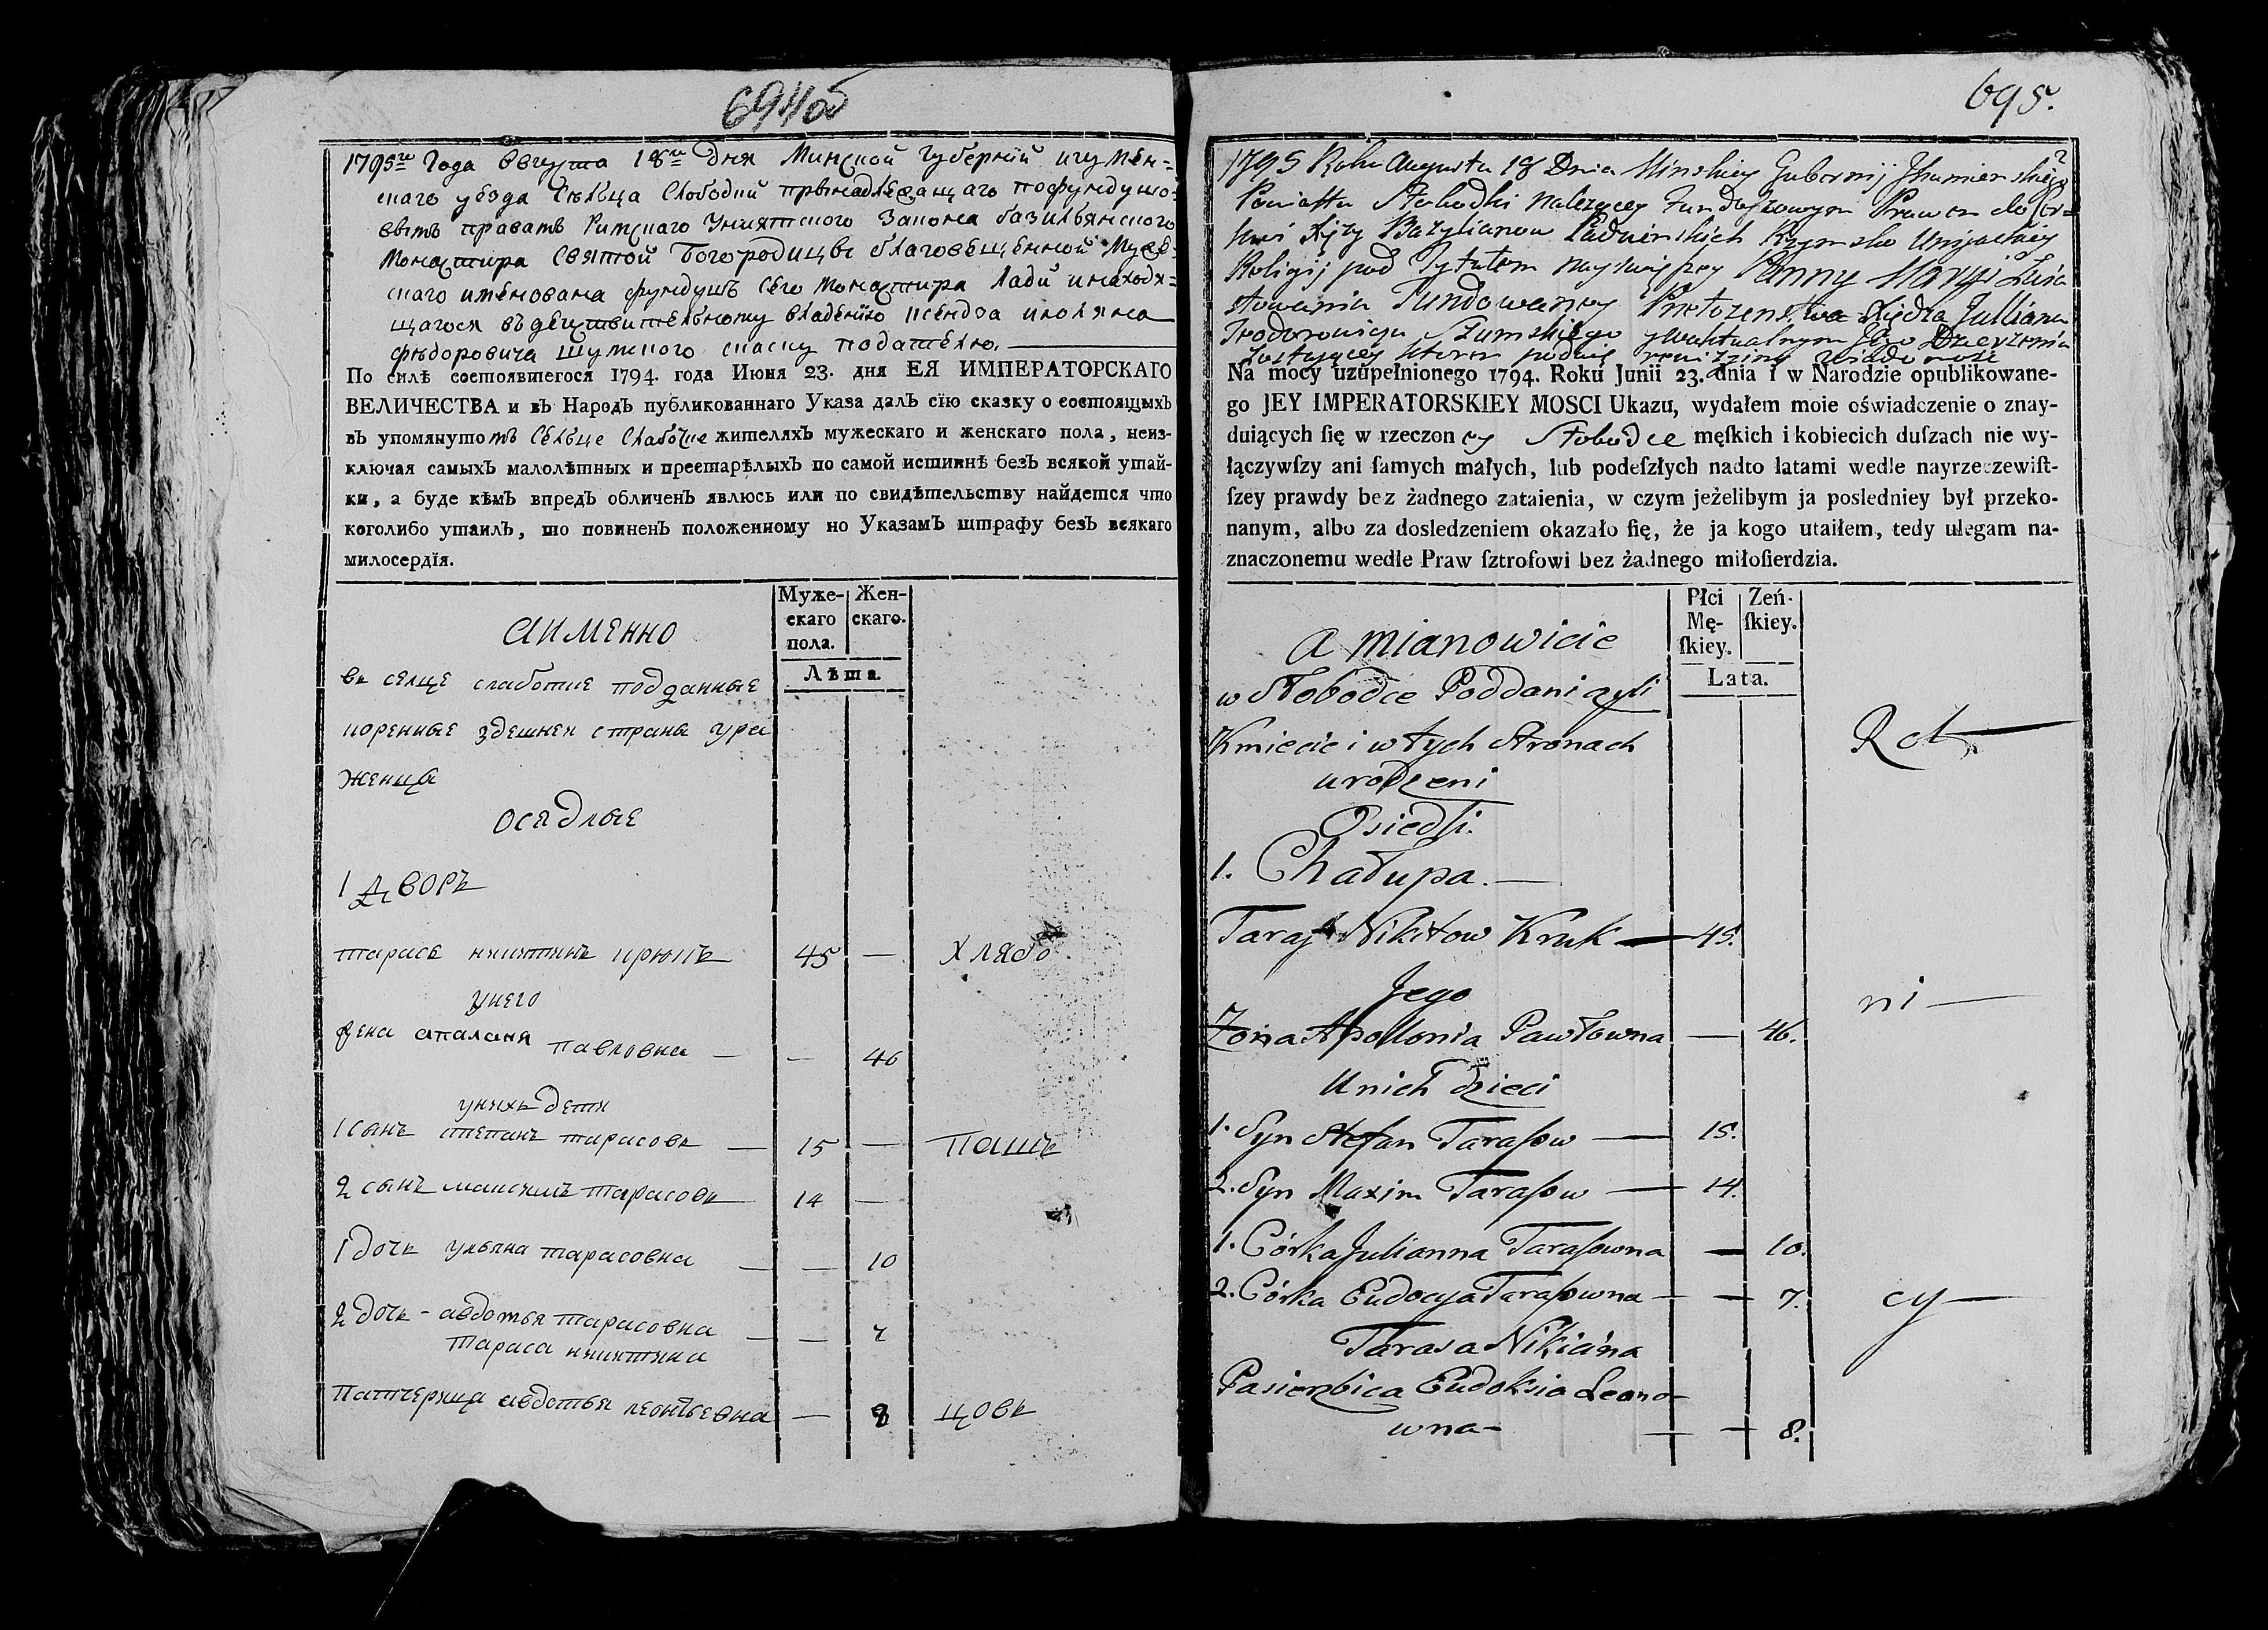 694об
1795го Года Августа 18го Дня Минской Губернїи игумен=
скаго уезда Селца Слободки принадлежащаго по фундушо=
вымъ правамъ Римскаго Униятского Закона базилиянского
Монастира Святой Богородицы благовещенной
скаго именована фундушъ Сего Монастира Лади инаходя=
щагося въ действителному владению ксендза июлияна
федоровича Шумского подателю.
По силѣ состоявшегося 1794. года Июня 23. дня ЕЯ ИМПЕРАТОРСКАГО
ВЕЛИЧЕСТВА и въ Народъ публикованнаго Указа далъ сїю сказку о состоящыхъ
въ упомянутомъ Селце Слабоде жителяхъ мужескаго и женскаго пола, неиз-
ключая самыхъ малолѣтныхъ и престарѣлыхъ по самой истиннѣ безъ всякой утай-
ки, а буде кѣмъ впредъ обличенъ явлюсь или по свидѣтельству найдется что
коголибо утаилъ, то повиненъ положенному по Указамъ штрафу безъ всякаго
милосердїя.
Муже-
скаго
пола.
Жен-
скаго.
Лѣта.
аименно
въ селце слаботке подданные
коренные здешнея страны уро
женцы
оседлые
1 дворъ
тарасъ никитинъ крюкъ 45 — хлябо
унего
жена апалоня павловна — — 46
унихъ дети
1 сынъ степанъ тарасовъ — 15 — пашъ
2 сынъ максимъ тарасовъ 14 —
1 дочь ульяна тарасовна — — 10
2 дочь - авдотья тарасовна — — 7
тараса никитина
патчерица авдотья леонтьевна — 8 цовъ
695.
1795 Roku Augusta 18 Dnia Minskiey Gubernij Ihumienskiego
Powiattu Słobodki należącey Funduszowym Prawem do
Xięży Bazylianow Ladzieńskich Rzymsko Uniackiey
Religij pod Tytułem nayświętszey Panny Maryi Zwia
stowania Fundowaney Przełożenstwa Xiędza Julliana
Teodorowicza Szumskiego Jego Dzierżenia
zostaiącey
Na mocy uzupełnionego 1794. Roku Junii 23. dnia i w Narodzie opublikowane-
go JEY IMPERATORSKIEY MOSCI Ukazu, wydałem moie oświadczenie o znay-
duiących ſię w rzeczoney Słobodce męſkich i kobiecich duſzach nie wy-
łączywſzy ani ſamych małych, lub podeſzłych nadto latami wedle nayrzeczewiſt-
ſzey prawdy bez żadnego zataienia, w czym jeżelibym ja posledniey był przeko-
nanym, albo za dosledzeniem okazało ſię, że ja kogo utaiłem, tedy ulegam na-
znaczonemu wedle Praw ſztrofowi bez żadnego miłoſierdzia.
Płci
Mę-
ſkiey.
Zeń-
ſkiey.
Lata.
a mianowicie
w Słobodce Poddani czyli
Kmiecie i w tych Stronach
urodzeni
Osiedli.
1. Chałupa. —
Taras Nikitow Kruk — 45.
Jego
Zona Apollonia Pawłowna — 46.
ni —
U nich dzieci
1. Syn Stefan Taraſow — 15.
2. Syn Maxim Taraſow — 14.
1. Córka Julianna Taraſowna — 10.
2. Córka Eudocya Taraſowna — — 7.
cy —
Tarasa Nikicina
Pasierzbica Eudoksia Leono-
wna — — — 8.